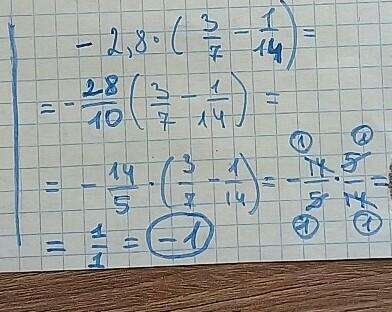 - 2,8 · ( 3/7 - 1/14 ) =
= - 28/10 ( 3/7 - 1/14 ) =
= - 14/5 · ( 3/7 - 1/14 ) = - 14/5 · 5/14 =
= 1/1 = -1